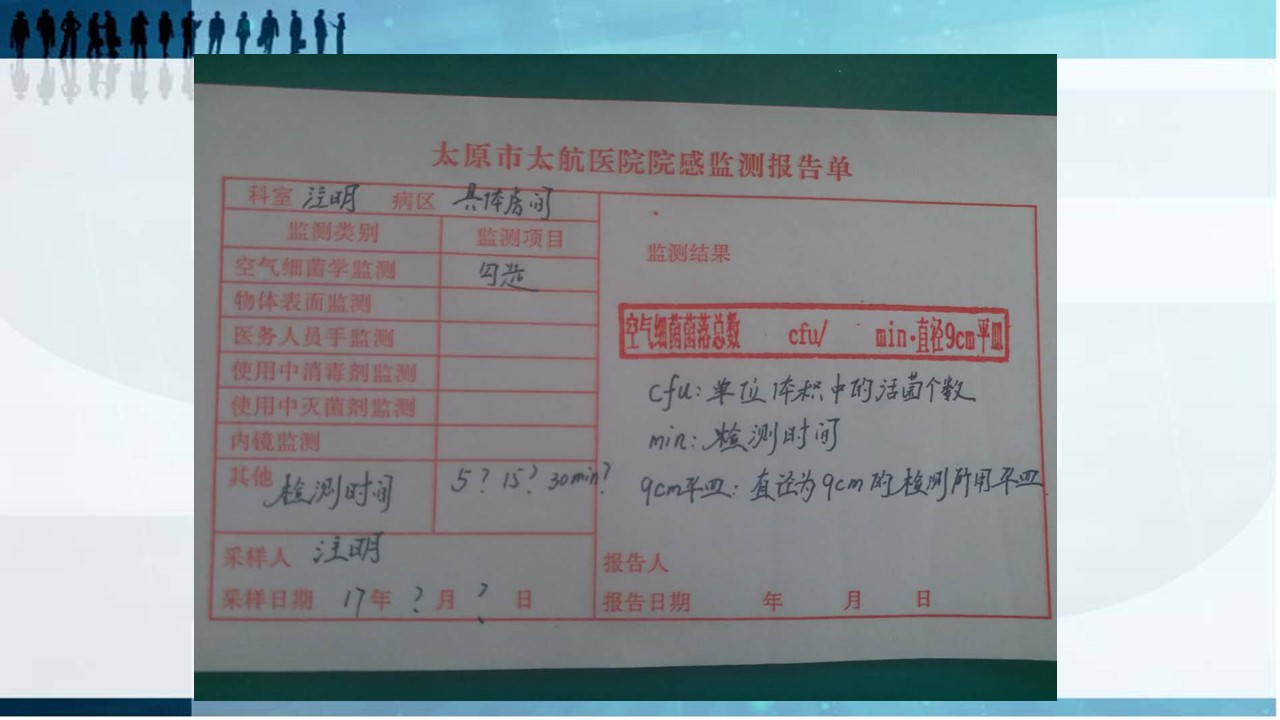 太原市太航医院院感监测报告单
科室 注明 病区 具体房间
监测类别 监测项目
空气细菌学监测 勾选
物体表面监测
医务人员手监测
使用中消毒剂监测
使用中灭菌剂监测
内镜监测
其他 检测时间 5? 15? 30min?
采样人 注明
采样日期 17年 ? 月 ? 日
监测结果
空气细菌菌落总数 cfu/ min·直径9cm平皿
cfu: 单位体积中的活菌个数
min: 检测时间
9cm平皿: 直径为9cm的检测所用平皿
报告人
报告日期 年 月 日